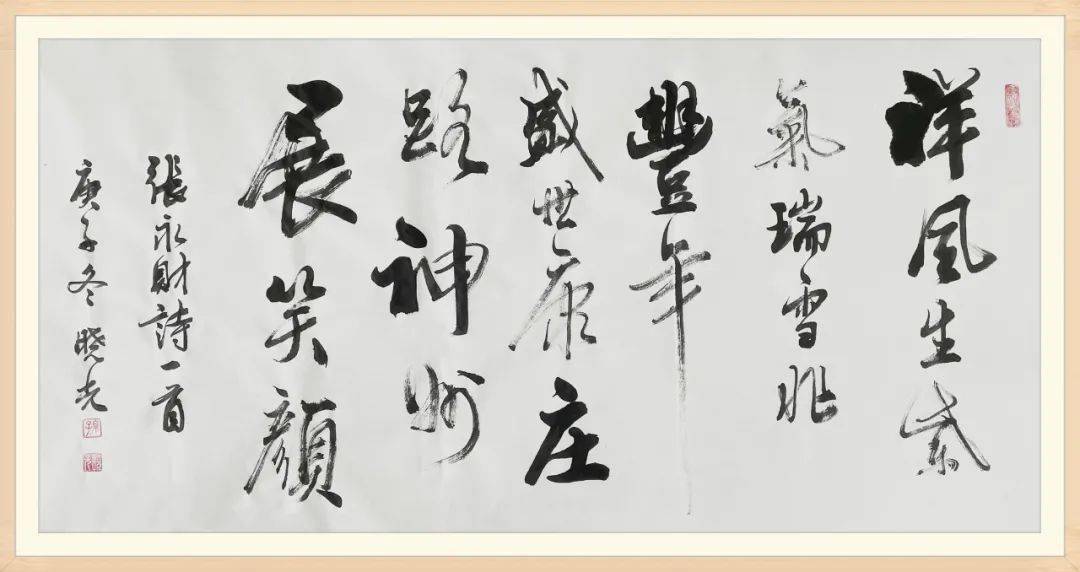 祥風生紫
氣瑞雪兆
豐年
盛世康庄
路神州
展笑顏
張永財詩一首
庚子冬曉光